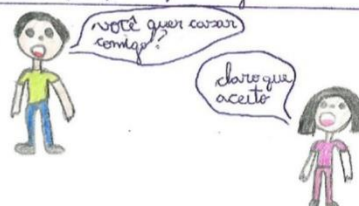 você quer casar
comigo?
claro que
aceito